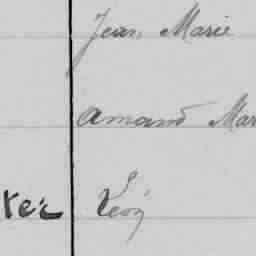 Jean, Marie
Amand Mar
Léon